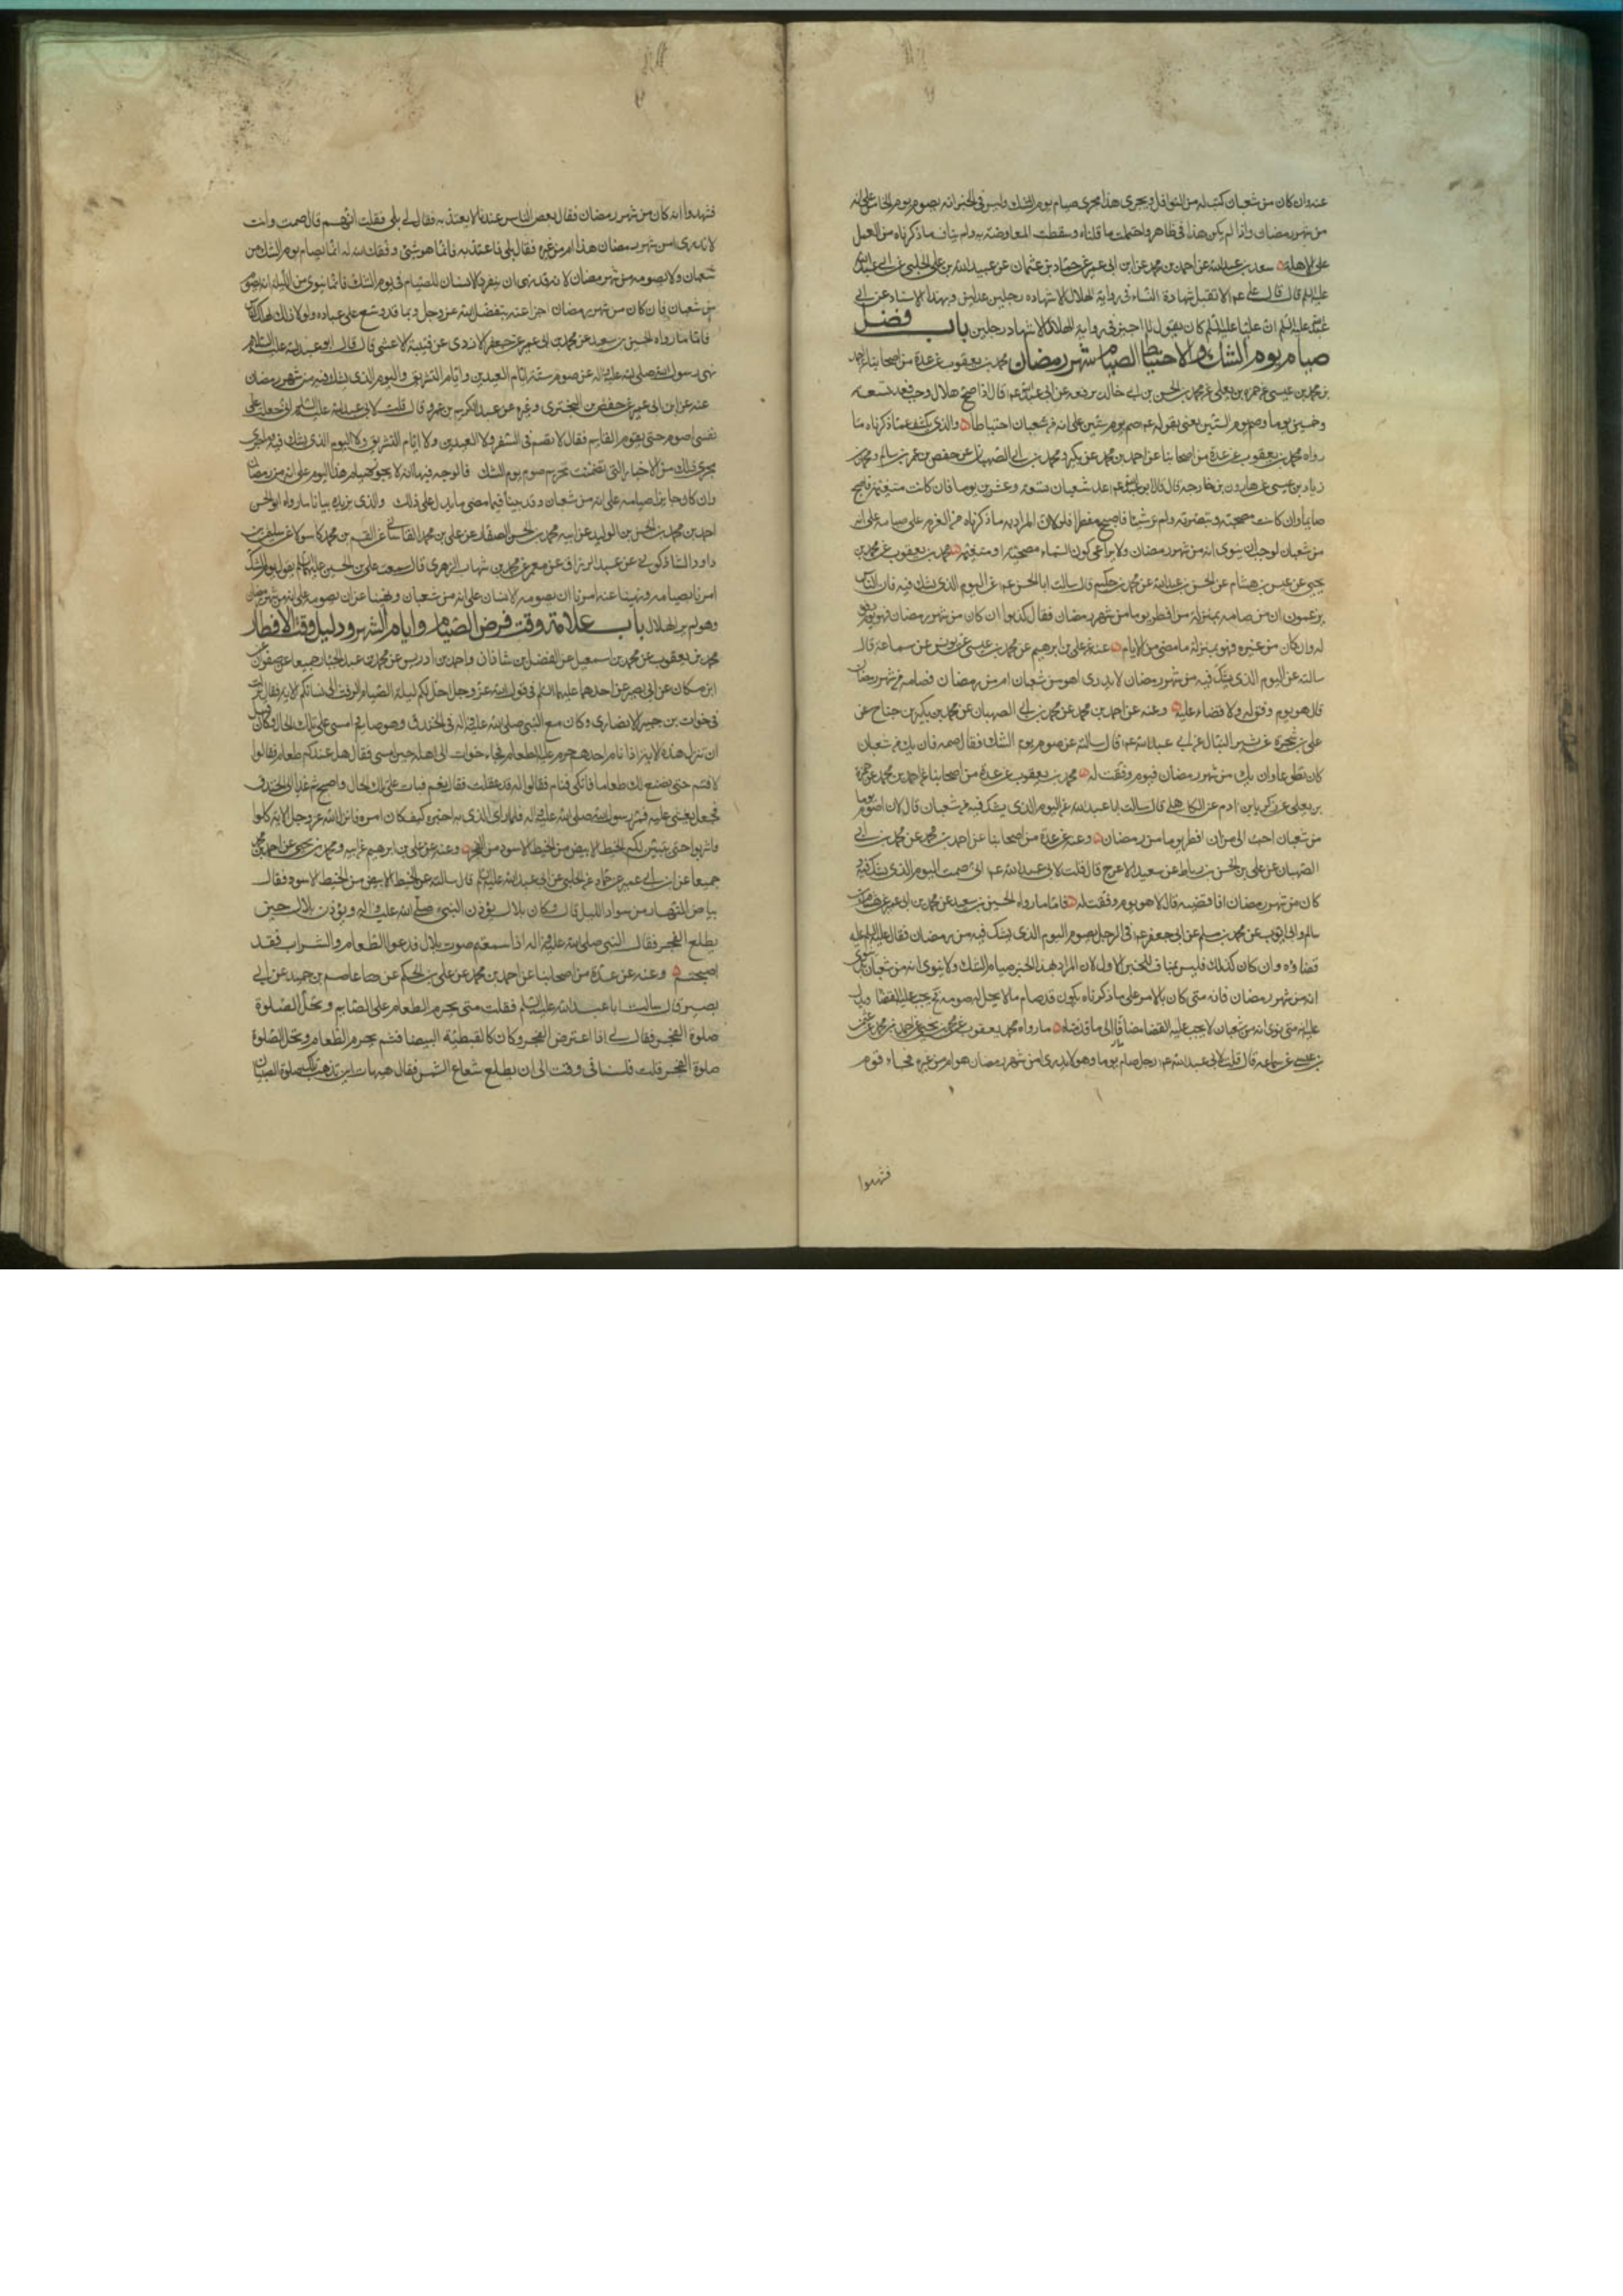 عنه وان كان من شعبان كتب له من النوافل ويجرى هذا مجرى صيام يوم الشك وليس فى الخبر انه يصوم يوم الخامس على انه
من شهر رمضان واذا لم يكن هذا فى ظاهره واحتملت ما قلناه وسقطت المعارضة به ولم يناف ما ذكرناه من العمل
على الاهلة سعد بن عبد الله عن احمد بن محمد عن ابن ابى عمير عن حماد بن عثمان عن عبيد الله بن على الحلبى عن ابى عبد الله
عليه السلم قال قال على عم لا تقبل شهادة النساء فى رواية الهلال الا شهادة رجلين عدلين وبهذا الاسناد عن ابى
عبد الله عليه السلم ان عليا عليه السلم كان يقول لا اجيز فى رواية الهلال الا شهادة رجلين باب فضل
صيام يوم الشك والاحتياط لصيام شهر رمضان محمد بن يعقوب عن عدة من اصحابنا عن احمد
بن محمد بن عيسى عن حمزة بن يعلى عن محمد بن الحسن بن ابى خالد يرفعه عن ابى عبد الله عم قال اذا صح هلال رجب فعد تسعة
وخمسين يوما وصم يوم الستين يعنى بقوله عم صم يوم ستين على انه من شعبان احتياطا والذى يكشف عما ذكرناه ما
رواه محمد بن يعقوب عن عدة من اصحابنا عن احمد بن محمد عن بكر ومحمد بن ابى الصهبان عن حفص بن عمر بن سالم ومحمد بن
زياد بن عيسى عن هارون بن خارجة قال قال ابو عبد الله عم عد شعبان تسعة وعشرين يوما فان كانت متغيمة فاصبح
صايما وان كانت مصحية وتبصرته ولم تر شيئا فاصبح مفطرا فلولا ان المراد به ما ذكرناه من العزم على صيامه على انه
من شعبان لوجب ان ينوى انه من شهر رمضان ولا يراعى كون السماء مصحية او متغيمة محمد بن يعقوب عن محمد بن
يحيى عن عيسى بن هشام عن الخضر بن عبد الله عن محمد بن حكيم قال سالت ابا الحسن عم عن اليوم الذى يشك فيه فان الناس
يزعمون ان من صامه بمنزلة من افطر يوما من شهر رمضان فقال كذبوا ان كان من شهر رمضان فهو يوم وفق
له وان كان من غيره فهو بمنزلة ما مضى من الايام وعنه عن على بن ابرهيم عن محمد بن عيسى عن يونس عن سماعة قال
سالته عن اليوم الذى يشك فيه من شهر رمضان لا يدرى اهو من شعبان ام من رمضان فصامه من شهر رمضان
قال هو يوم وفق له ولا قضاء عليه وعنه عن احمد بن محمد عن محمد بن ابى الصهبان عن محمد بن بكير بن جناح عن
على بن شجرة عن بشير النبال عن ابى عبد الله عم قال سالته عن صوم يوم الشك فقال صمه فان يك من شعبان
كان تطوعا وان يك من شهر رمضان فيوم وفقت له محمد بن يعقوب عن عدة من اصحابنا عن احمد بن محمد عن حمزة
بن يعلى عن زكريا بن ادم عن الكاهلى قال سالت ابا عبد الله عن اليوم الذى يشك فيه من شعبان قال لان اصوم يوما
من شعبان احب الى من ان افطر يوما من رمضان وعنه عن عدة من اصحابنا عن احمد بن محمد عن محمد بن ابى
الصهبان عن على بن الحسن بن رباط عن سعيد الاعرج قال قلت لابى عبد الله عم انى صمت اليوم الذى يشك فيه
كان من شهر رمضان افاقضيه قال لا هو يوم وفقت له فاما ما رواه الحسين بن سعيد عن محمد بن ابى عمير عن هشام بن
سالم وابى ايوب عن محمد بن مسلم عن ابى جعفر عم فى الرجل يصوم اليوم الذى يشك فيه من رمضان فقال عليه السلم عليه
قضاؤه وان كان كذلك فليس بمناف للخبر الاول لان المراد بهذا الخبر من صيام الشك ولا ينوى انه من شعبان بل ينوى
انه من شهر رمضان فانه متى كان بالامر على ما ذكرناه يكون قد صام ما لا يحل له صومه ثم يجب عليه القضا ويدل
عليه انه متى نوى انه من شعبان لا يجب عليه القضا مضافا الى ما قدمناه ما رواه محمد بن يعقوب عن محمد بن يحيى عن احمد بن محمد عن عثمن
بن عيسى عن سماعة قال قلت لابى عبد الله عم رجل صام يوما وهو لا يدرى امن شهر رمضان هو ام من غيره فجاء قوم
فشهدوا
فشهدوا انه كان من شهر رمضان فقال بعض الناس عندنا لا يعتد به فقال لى بلى فقلت انهم قال صمت وانت
لا تدرى امن شهر رمضان هذا ام من غيره فقال بلى فاعتد به فانما هو شئ وفقك الله له انما يصام يوم الشك من
شعبان ولا يصومه من شهر رمضان لانه قد نهى ان ينفرد الانسان للصيام فى يوم الشك فانما ينوى من الليلة انه يصوم
من شعبان فان كان من شهر رمضان اجزا عنه بتفضل الله عز وجل وبما قد وسع على عباده ولولا ذلك لهلك الناس
فاما ما رواه الحسين بن سعيد عن محمد بن ابى عمير عن جعفر الازدى عن قتيبة الاعشى قال قال ابو عبد الله عليه السلام
نهى رسول الله صلى الله عليه واله عن صوم ستة ايام العيدين وايام التشريق واليوم الذى يشك فيه من شهر رمضان
عنه عن ابن ابى عمير عن حفص بن البخترى وغيره عن عبد الكريم بن عمرو قال قلت لابى عبد الله عليه السلم انى جعلت على
نفسى اصوم حتى يقوم القايم فقال لا تصم فى السفر ولا العيدين ولا ايام التشريق ولا اليوم الذى يشك فيه وما جرى
مجرى ذلك من الاخبار التى تضمنت تحريم صوم يوم الشك فالوجه فيها انه لا يجوز صيام هذا اليوم على انه من رمضان
وان كان جايزا صيامه على انه من شعبان وقد بينا فيما مضى ما يدل على ذلك والذى يزيده بيانا ما رواه ابو الحسن
احمد بن محمد بن الحسن بن الوليد عن ابيه محمد بن الحسن الصفار عن على بن محمد القاسانى عن القسم بن محمد كاسولا عن سليمن بن
داود الشاذكونى عن عبد الرزاق عن معمر عن محمد بن شهاب الزهرى قال سمعت على بن الحسين عليهما السلم يقول يوم الشك
امرنا بصيامه ونهينا عنه امرنا ان يصومه الانسان على انه من شعبان ونهينا عن ان يصومه على انه من شهر رمضان
وهو لم ير الهلال باب علامة وقت فرض الصيام وايام الشهر ودليل وقت الافطار
محمد بن يعقوب عن محمد بن اسمعيل عن الفضل بن شاذان واحمد بن ادريس عن محمد بن عبد الجبار جميعا عن صفوان عن
ابن مسكان عن ابى بصير عن احدهما عليهما السلم فى قول الله عز وجل احل لكم ليلة الصيام الرفث الى نسائكم الاية فقال نزلت
فى خوات بن جبير الانصارى وكان مع النبى صلى الله عليه واله فى الخندق وهو صايم امسى على تلك الحال وكانوا قبل
ان تنزل هذه الاية اذا نام احدهم حرم عليه الطعام فجاء خوات الى اهله حين امسى فقال هل عندكم طعام فقالوا
لا فنم حتى نصنع لك طعاما فاتكى فنام فقالوا له قد عقلت فقال نعم فبات على تلك الحال واصبح ثم غدا الى الخندق
فجعل يغشى عليه فمر رسول الله صلى الله عليه واله فلما راى الذى به اخبره كيف كان امره فانزل الله عز وجل الاية كلوا
واشربوا حتى يتبين لكم الخيط الابيض من الخيط الاسود من الفجر وعنه عن على بن ابرهيم عن ابيه ومحمد بن يحيى عن احمد بن محمد
جميعا عن ابن ابى عمير عن حماد عن الحلبى عن ابى عبد الله عليه السلم قال سالته عن الخيط الابيض من الخيط الاسود فقال
بياض النهار من سواد الليل قال وكان بلال يؤذن النبى صلى الله عليه واله ويؤذن بلال حين
يطلع الفجر فقال النبى صلى الله عليه واله اذا سمعتم صوت بلال فدعوا الطعام والشراب فقد
اصبحتم وعنه عن عدة من اصحابنا عن احمد بن محمد عن على بن الحكم عن عاصم بن حميد عن ابى
بصير قال سالت ابا عبد الله عليه السلم فقلت متى يحرم الطعام على الصايم وتحل الصلوة
صلوة الفجر فقال لى اذا اعترض الفجر وكان كالقبطية البيضا فثم يحرم الطعام وتحل الصلوة
صلوة الفجر قلت فلسنا فى وقت الى ان يطلع شعاع الشمس فقال هيهات اين تذهب تلك صلوة الصبيان